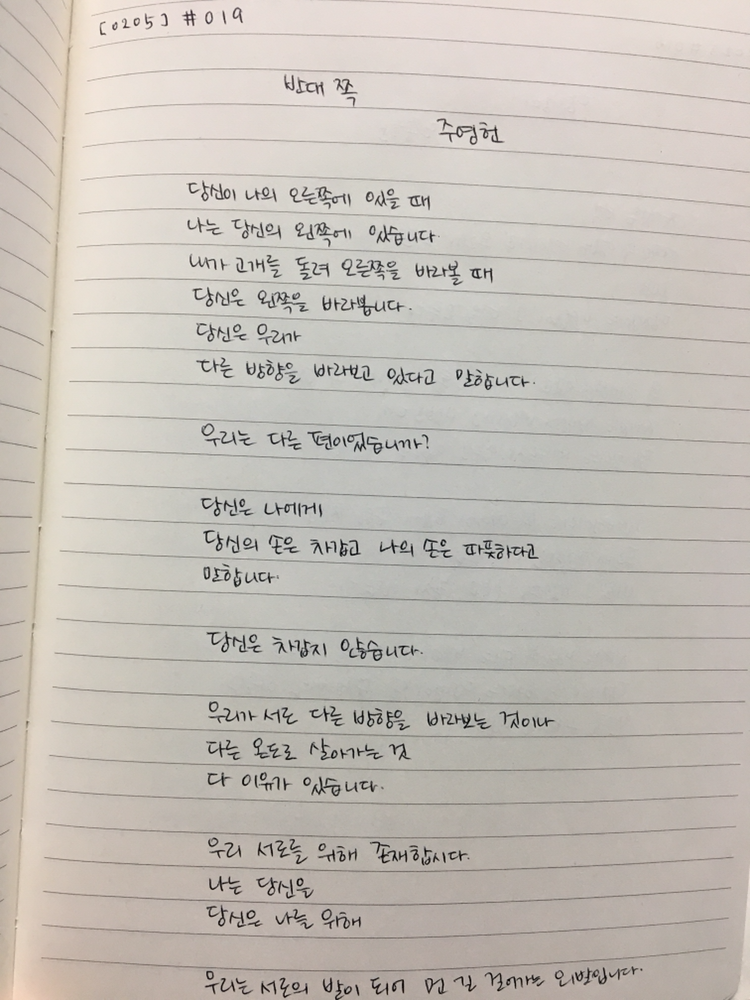 [0205] #019
반대 쪽
주영헌
당신이 나의 오른쪽에 있을 때
나는 당신의 왼쪽에 있습니다.
내가 고개를 돌려 오른쪽을 바라볼 때
당신은 왼쪽을 바라봅니다.
당신은 우리가
다른 방향을 바라보고 있다고 말합니다.
우리는 다른 편이었습니까?
당신은 나에게
당신의 손은 차갑고 나의 손은 따뜻하다고
말합니다.
당신은 차갑지 않습니다.
우리가 서로 다른 방향을 바라보는 것이나
다른 온도로 살아가는 것
다 이유가 있습니다.
우리 서로를 위해 존재합시다.
나는 당신을
당신은 나를 위해
우리는 서로의 발이 되어 먼 길 걸어가는 외발입니다.